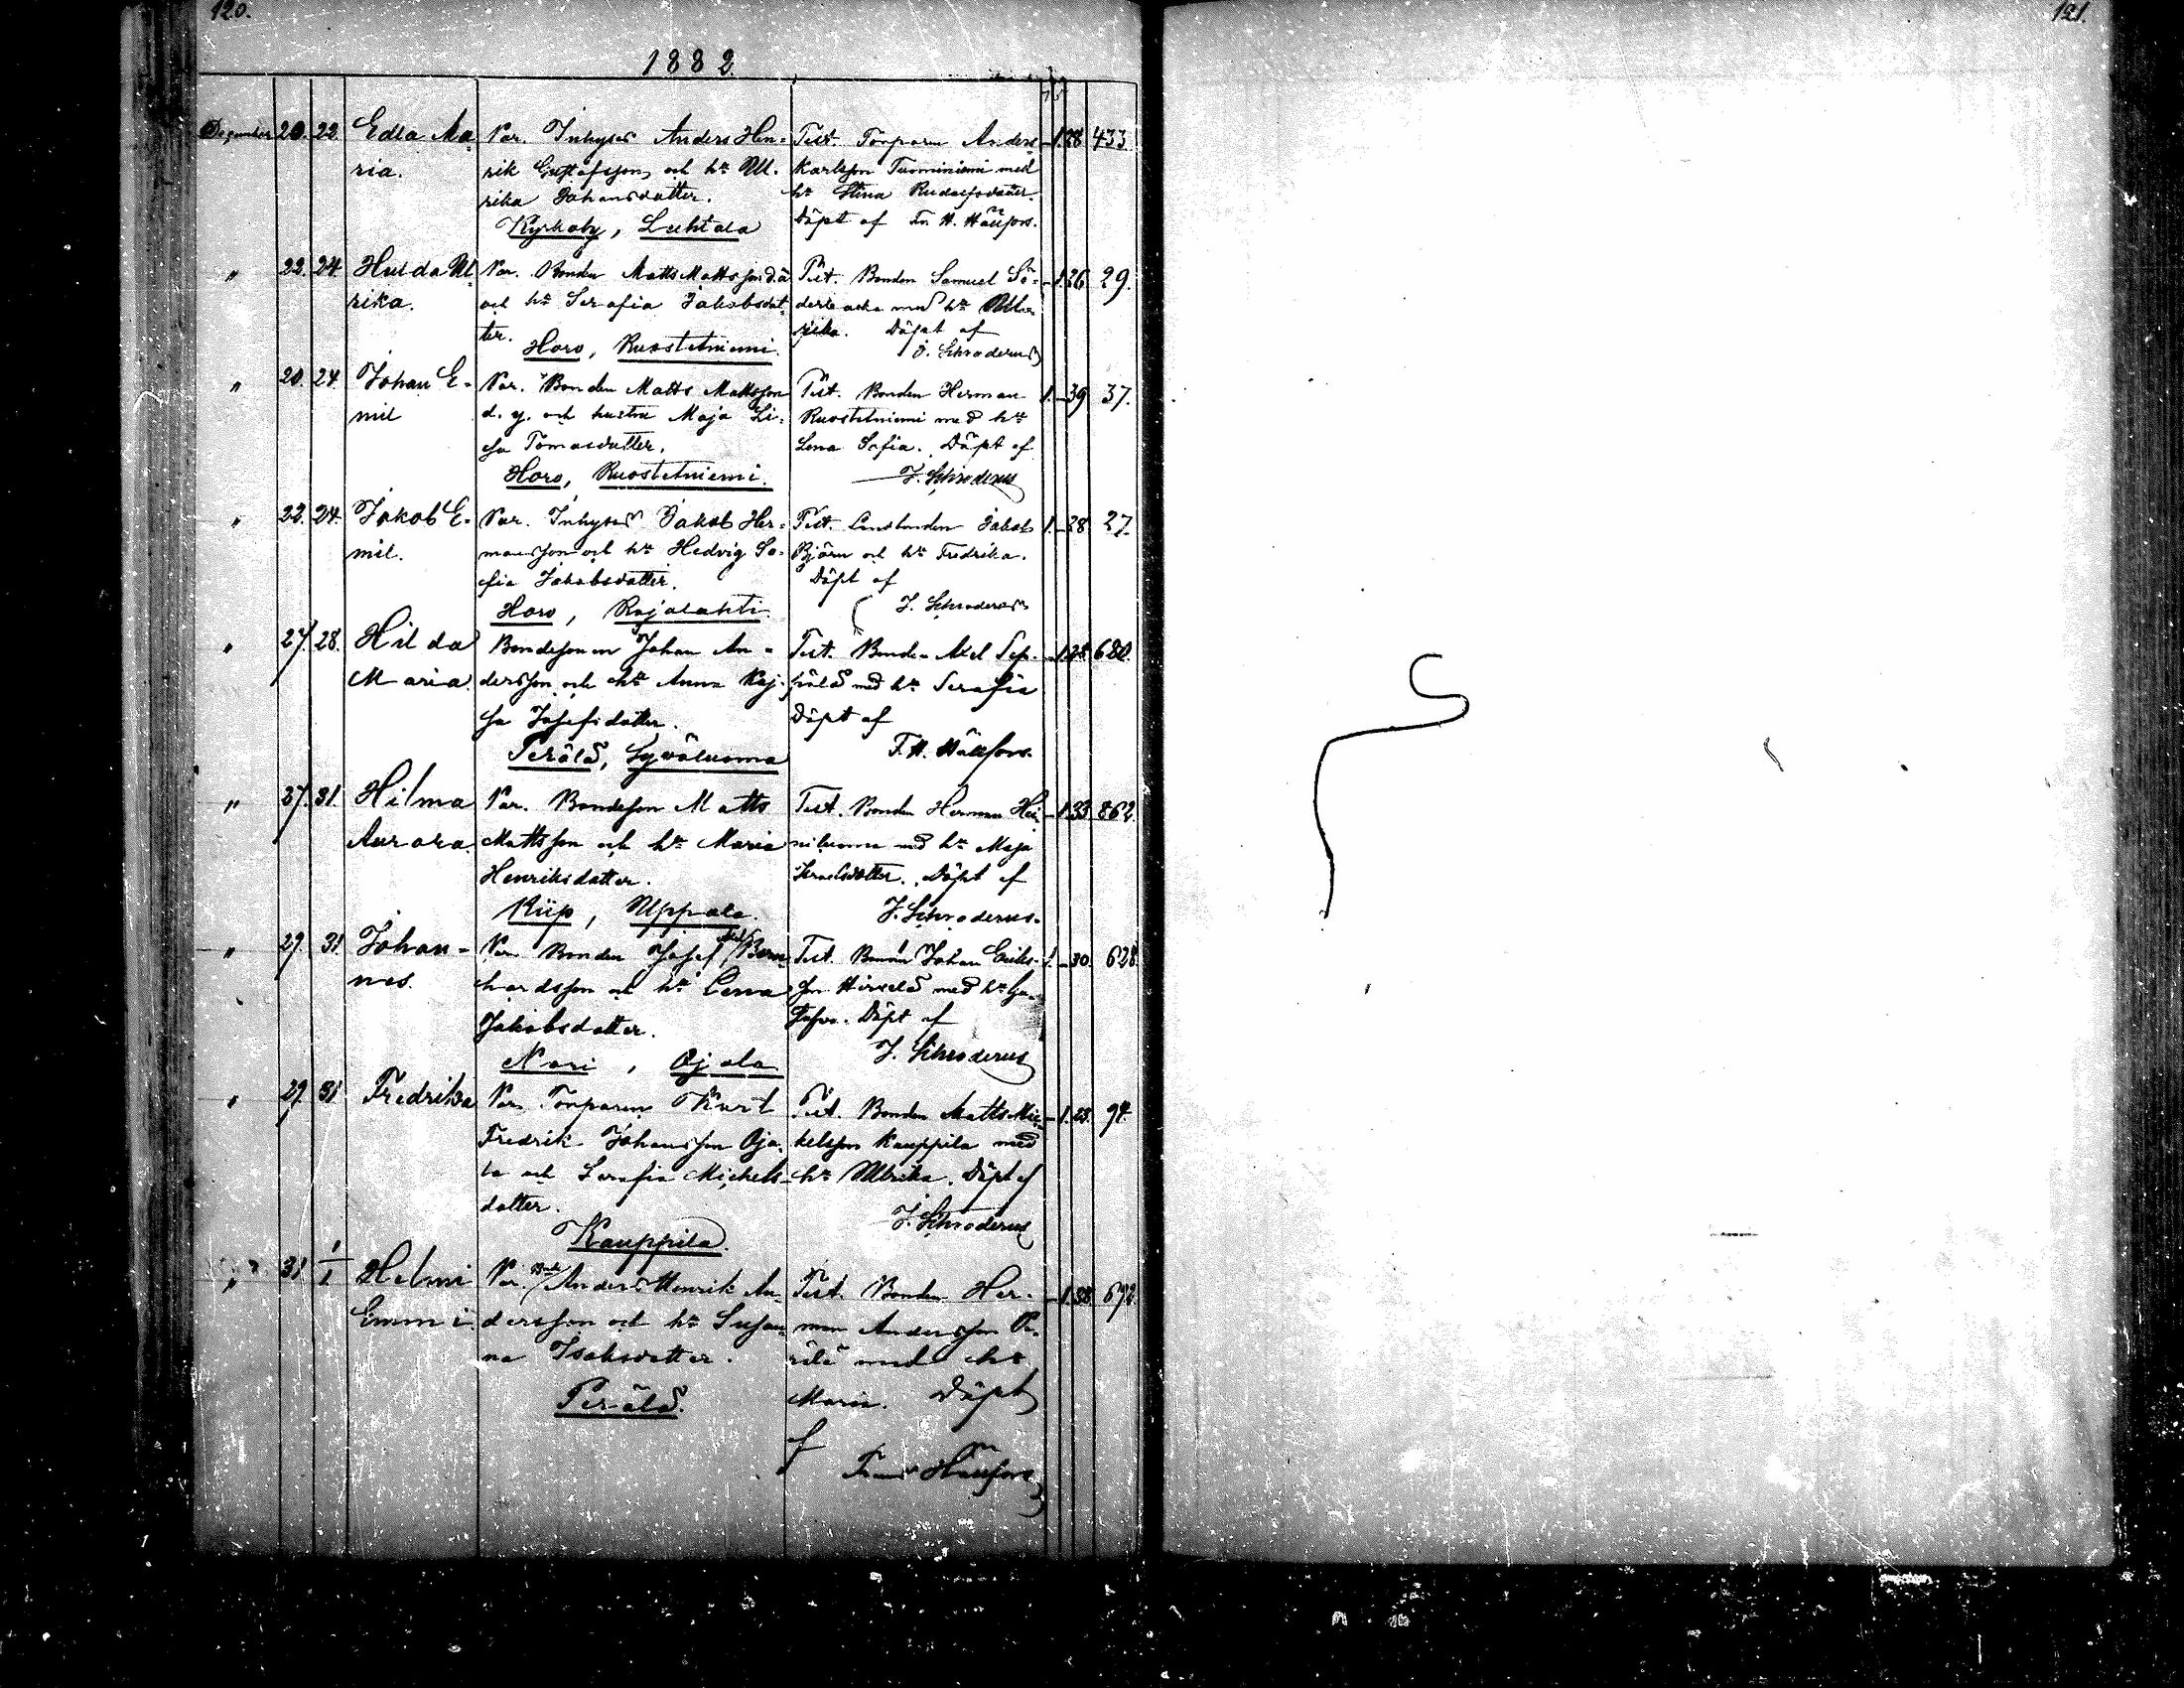 120.
121.
1882.
December 20. 22. Edla Ma-
ria.
Par. Inhyses Anders Hen-
rik Gustafsson och hu Ul-
rika Johansdotter.
Kyrkoby, Luhtala
Test. Torparen Anders
Karlsson Tuominiemi med
hu Stina Rudolfsdotter.
Döpt af Fr. H. Hällfors.
- 1. 28 433.
" 22. 24. Hulda Ul-
rika.
Par. Bonden Matts Mattsson d.ä
och hu Serafia Jakobsdot-
ter.
Horo, Ruostetniemi.
Test. Bonden Samuel Sö-
derbacka med hu Ul-
rika. Döpt af
J. Schroderus
- 1. 26 29.
" 20. 24. Johan E-
mil
Par. Bonden Matts Mattsson
d. y. och hustru Maja Li-
sa Tomasdotter.
Horo, Ruostetniemi.
Test. Bonden Herman
Ruostetniemi med hu
Lena Sofia. Döpt af
J. Schroderus
1. - 39 37.
" 22. 24. Jakob E-
mil.
Par. Inhyses Jakob Her-
mansson och hu Hedvig So-
fia Jakobsdotter.
Horo, Rajalahti.
Test. Jakob
Björn och hu Fredrika.
Döpt af
J. Schroderus
1. - 28 27.
" 27. 28. Hilda
Maria.
Bondesonen Johan An-
dersson och hu Anna Kaj-
sa Josefsdotter.
Perälä, Syväluoma
Test. Bonden Axel Sep-
pälä med hu Serafia
Döpt af
F. H. Hällfors.
- 1. 680.
" 27. 31. Hilma
Aurora.
Par. Bondeson Matts
Mattsson och hu Maria
Henriksdotter.
Riip, Uppala.
Test. Bonden Herman Hei-
niluoma med hu Maja
Israelsdotter. Döpt af
J. Schroderus.
- 1. 33 862.
" 29. 31. Johan-
nes.
Par. Bonden Josef Bern-
hardsson och hu Lena
Jakobsdotter.
Nori, Ojala
Test. Bonden Johan Eriks-
son Hirvelä med hu
Döpt af
J. Schroderus
1. - 30. 628.
" 29. 31. Fredrika
Par. Torparen Karl
Fredrik Johansson Oja-
la och Serafia Michels-
dotter.
Kauppila.
Test. Bonden Matts Mic-
kelsson Kauppila med
hu Ulrika. Döpt af
J. Schroderus
- 1. 28. 94.
" 31 1/1 Helmi
Emmi.
Par. Anders Henrik An-
dersson och hu Susan-
na Isaksdotter.
Perälä.
Test. Bonden Her-
man Andersson Pe-
rälä med hu
Maria. Döpt
af
Hällfors
- 1. 38 692.